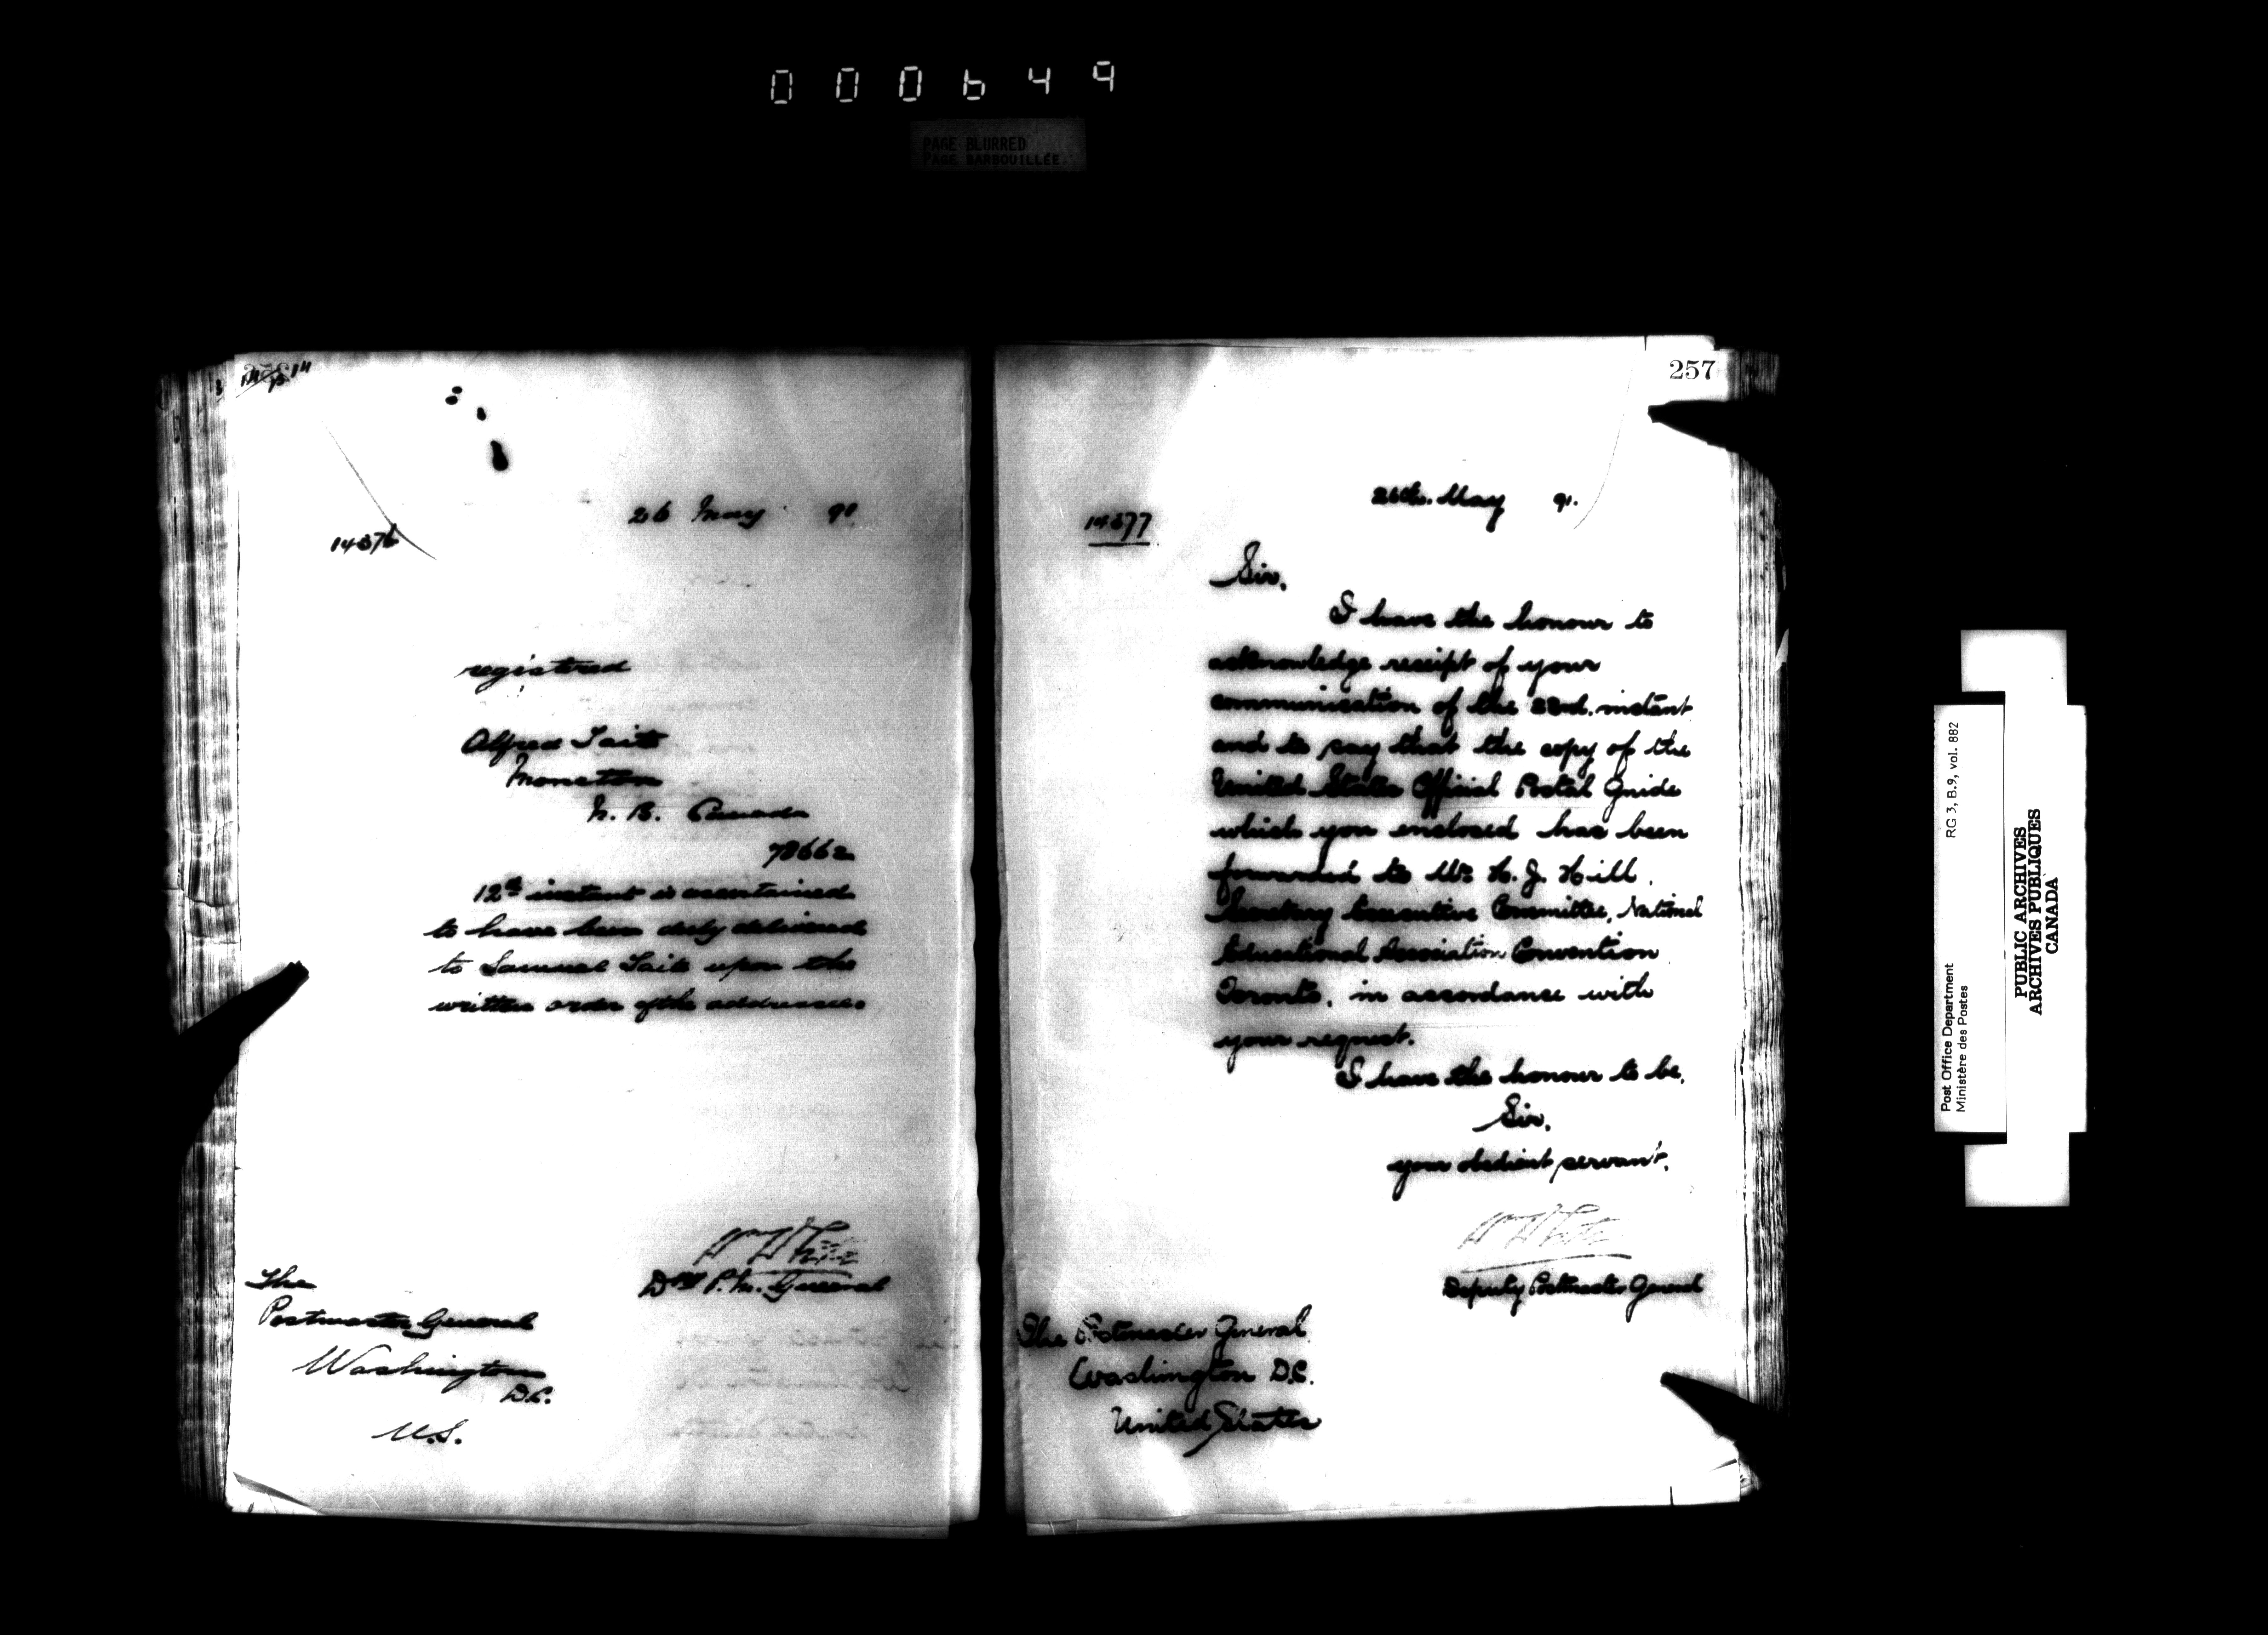 000649
PAGE BLURRED
PAGE BARBOUILLÉE
256
26 May 91
14376
registered
Alfred Tait
Moncton
N. B. Canada
78662
12th instant is ascertained
to have been duly delivered
to Samuel Tait upon the
written order of the addressee.
Wm White
D P. M. General
The
Postmaster General
Washington
D.C.
U.S.
257
26th. May 91.
14377
Sir,
I have the honour to
acknowledge receipt of your
communication of the 22nd. instant
and to say that the copy of the
United States Official Postal Guide
which you enclosed has been
forwarded to Mr. H. J. Hill,
Secretary Executive Committee, National
Educational Association Convention
Toronto, in accordance with
your request.
I have the honour to be,
Sir,
your obedient servant,
Wm White
Deputy Postmaster General
The Postmaster General
Washington D.C.
United States
Post Office Department
Ministère des Postes
RG 3, B.9, vol. 882
PUBLIC ARCHIVES
ARCHIVES PUBLIQUES
CANADA